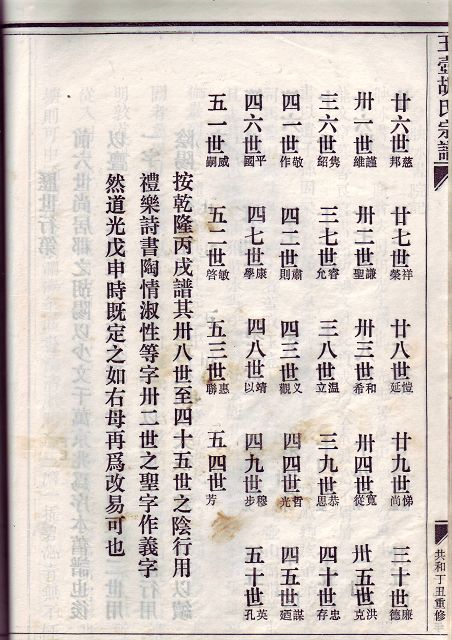 玉壺胡氏宗譜
共和丁丑重修
廿六世慈邦 廿七世祥榮 廿八世愷延 廿九世悌尚 三十世廉德
卅一世謹維 卅二世謙聖 卅三世和希 卅四世寬從 卅五世洪克
三六世雋紹 三七世睿允 三八世温立 三九世恭思 四十世忠存
四一世敬作 四二世肅則 四三世义觀 四四世哲光 四五世謀廸
四六世平國 四七世康學 四八世靖以 四九世穆步 五十世英孔
五一世威嗣 五二世敏啓 五三世惠聯 五四世芳
按乾隆丙戌譜其卅八世至四十五世之陰行用
禮樂詩書陶情淑性等字卅二世之聖字作義字
然道光戊申時既定之如右母再為改易可也